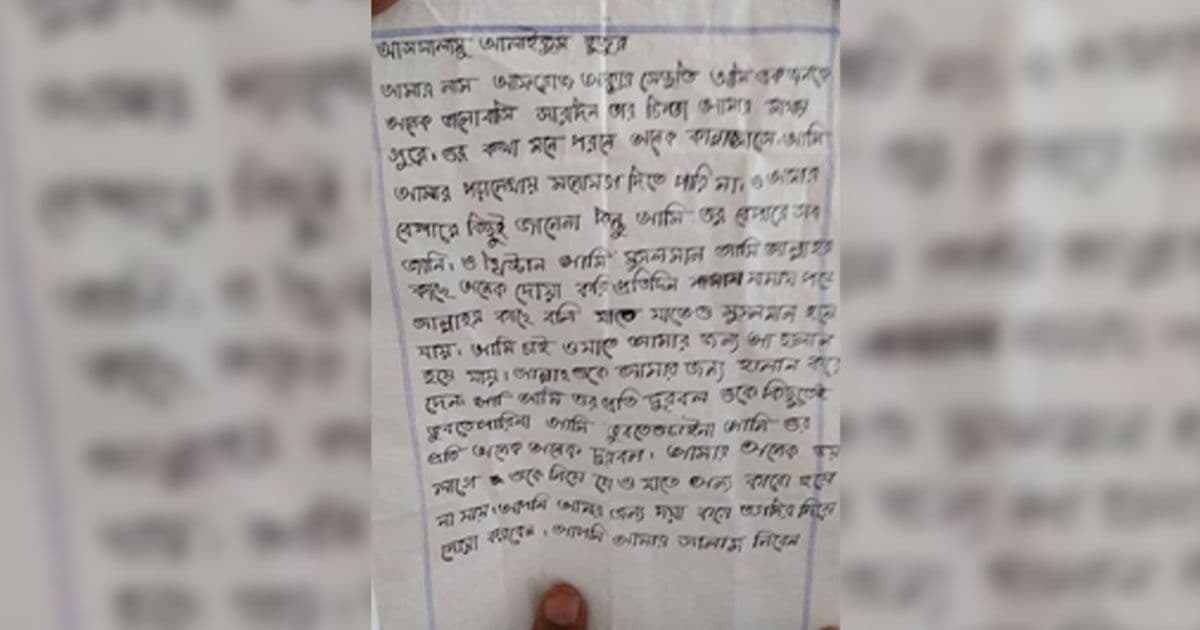 আসসালামু আলাইকুম হুজুর
আমার নাম আফরোজ আক্তার সেতুতি আমি একজনকে
অনেক ভালোবাসি সারাদিন তার চিন্তা আমার মাথায়
গুরে, ওর কথা মনে পরলে অনেক কান্না আসে, আমি
আমার পড়ালেখায় মনোযোগ দিতে পারি না, ও আমার
বেপারে কিছুই জানেনা কিন্তু আমি ওর বেপারে সব
জানি, ও খ্রিস্টান আমি মুসলমান আমি আল্লাহর
কাছে অনেক দোয়া করি প্রতিদিন নামায পরে
আল্লাহর কাছে বলি যাতে যাতেও মুসলমান হয়ে
যায়, আমি চাই ওযাতে আমার জন্য হালাল
হয়ে যায়। আল্লাহওকে আমার জন্য হালাল করে
দেন আমি ওরপ্রতি দুরবল ওকে কিছুতেই
ভুলতেপারিনা আমি ভুলতেওচাইনা আমি ওর
প্রতি অনেক অনেক দুরবল, আমার অনেক ভয়
লাগে ওকে নিয়ে যেও যাতে অন্য কারো হয়ে
না যায়, আপনি আমার জন্য দয়া করে
দোয়া করবেন, আপনি আমার সালাম নিবেন